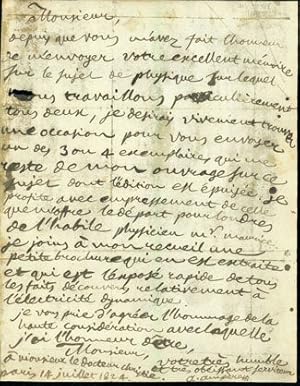 Monsieur,
depuis que vous m'avez fait l'honneur
de m'envoyer votre excellent mémoire
sur le sujet de physique sur lequel
nous travaillons particulièrement
tous deux, je désirais vivement trouver
une occasion pour vous envoyer
un des 3 ou 4 exemplaires qui me
reste de mon ouvrage sur ce
sujet dont l'édition est épuisée. je
profite avec empressement de celle
que m'offre le départ pour londres
de l'habile physicien mr.
je joins à mon recueil une
petite brochure qui en est extraite
et qui est l'exposé rapide de tous
les faits découverts relativement à
l'électricité dynamique.
je vous prie d'agréer l'hommage de la
haute considération avec laquelle
j'ai l'honneur d'être,
Monsieur,
votre très humble
et très obéissant serviteur
à monsieur le Docteur
a. ampère
paris 14 juillet 1824